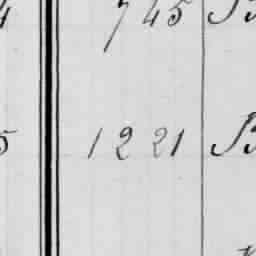 4 745
5 1221 B